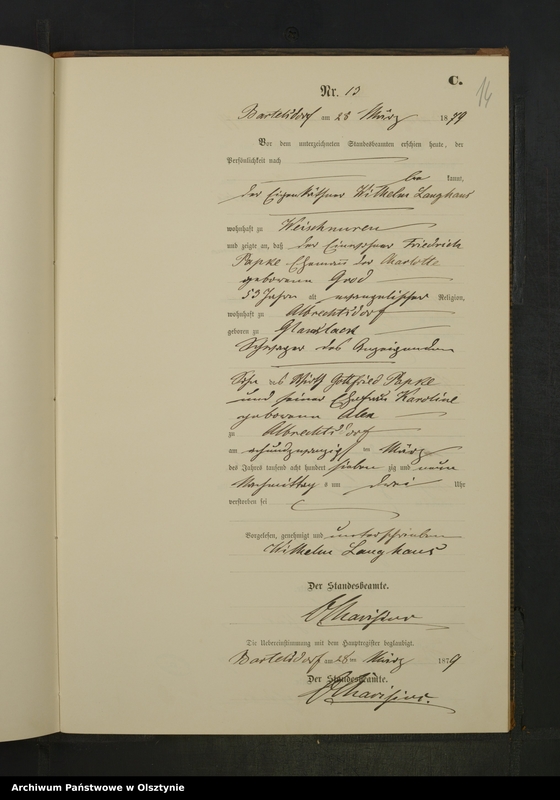 C.
14
Nr. 13
Bartelsdorf am 28 März 1879
Vor dem unterzeichneten Standesbeamten erschien heute, der
Persönlichkeit nach
be kannt,
der Eigenkäthner Wilhelm Langhans
wohnhaft zu
und zeigte an, daß der Einwohner Friedrich
Papke Ehemann der Charlotte
geborenen Grod
53 Jahre alt evangelischer Religion,
wohnhaft zu Albrechtsdorf
geboren zu Glomslack
Schwager des Anzeigenden
Sohn des Wirth Gottfried Papke
und seiner Ehefrau Karoline
geborenen
zu Albrechtsdorf
am achtundzwanzigsten März
des Jahres tausend acht hundert sieben zig und neun
Nachmittag s um drei Uhr
verstorben sei
Vorgelesen, genehmigt und unterschrieben
Wilhelm Langhans
Der Standesbeamte.
Die Uebereinstimmung mit dem Hauptregister beglaubigt.
Bartelsdorf am 28ten März 1879
Der Standesbeamte.
Archiwum Państwowe w Olsztynie